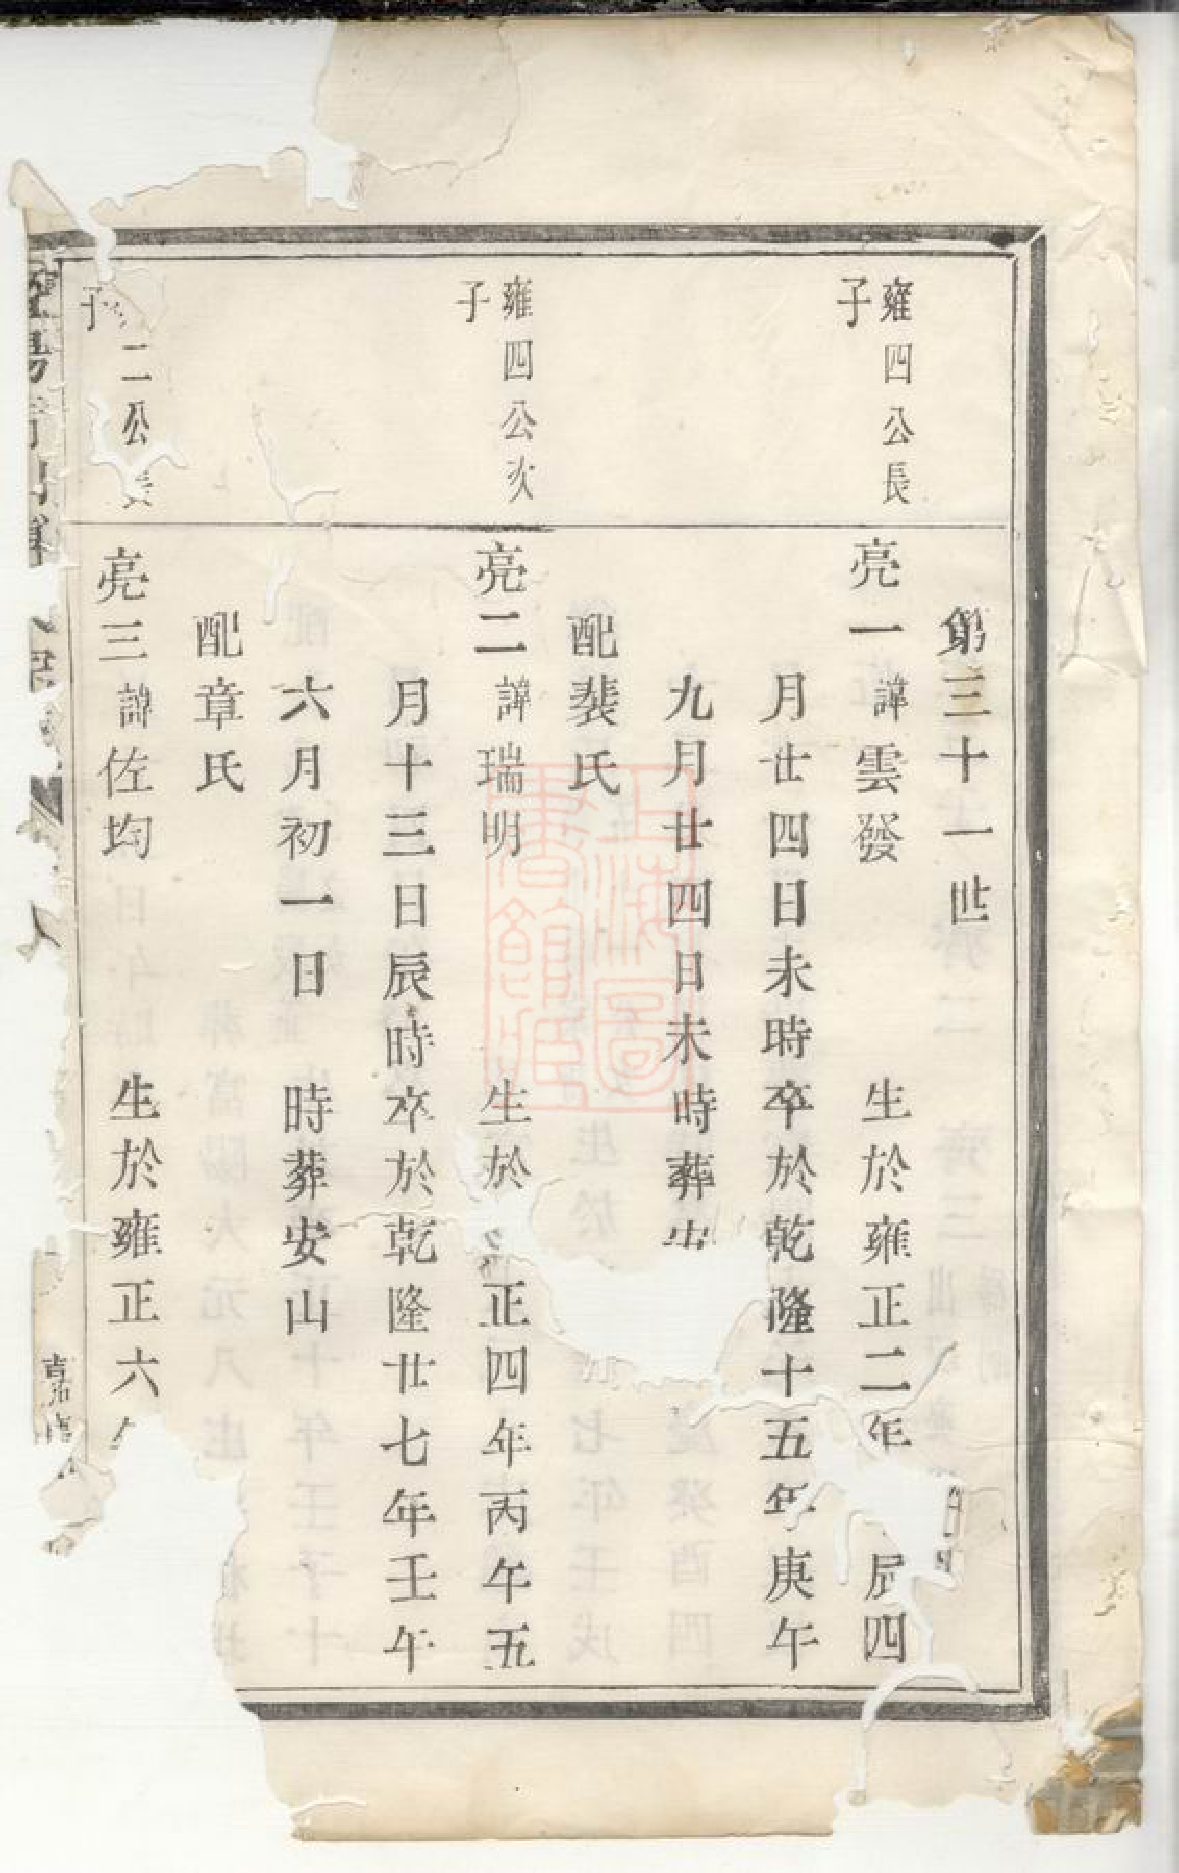 第三十一世
雍四公長
子
亮一諱雲發 生於雍正二年 辰四
月廿四日未時卒於乾隆十五年庚午
九月廿四日未時葬
配裴氏
雍四公次
子
亮二諱瑞明 生於 正四年丙午五
月十三日辰時卒於乾隆廿七年壬午
六月初一日 時葬安山
配章氏
二公
子
亮三諱佐均 生於雍正六
上海圖書館藏